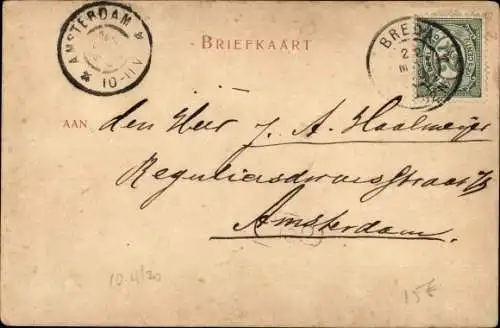 AMSTERDAM
10-11V
BREDA
BRIEFKAART
AAN den Heer J. A. Haalmeijer
Reguliersdwarsstraat 73
Amsterdam.
10.4/20
15€